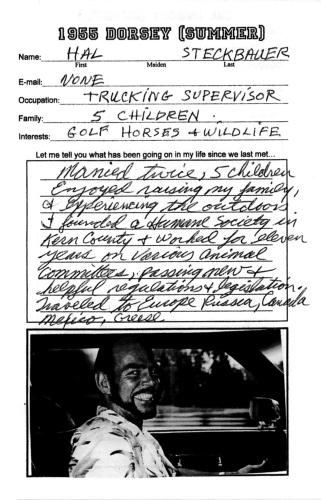 1955 DORSEY (SUMMER)
Name: HAL STECKBAUER
First Maiden Last
E-mail: NONE
Occupation: TRUCKING SUPERVISOR
Family: 5 CHILDREN.
Interests: GOLF HORSES + WILDLIFE
Let me tell you what has been going on in my life since we last met...
Married twice, 5 children
Enjoyed raising my family,
& Experiencing the outdoors
I founded a Humane Society in
Kern County + worked for eleven
years on various animal
Committees, passing new +
helpful regulations & legislation.
Traveled to Europe Russia, Canada
Mexico, Greese